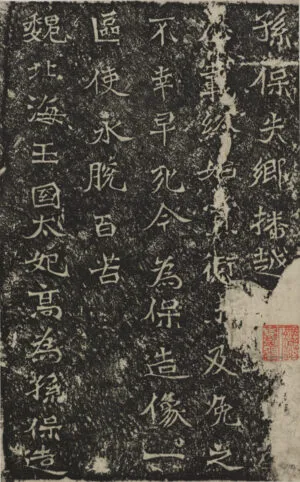 孫保失鄉播越
衛及免之
不幸早死今為保造像一
區使永脫百苦
魏北海王國太妃高為孫保造